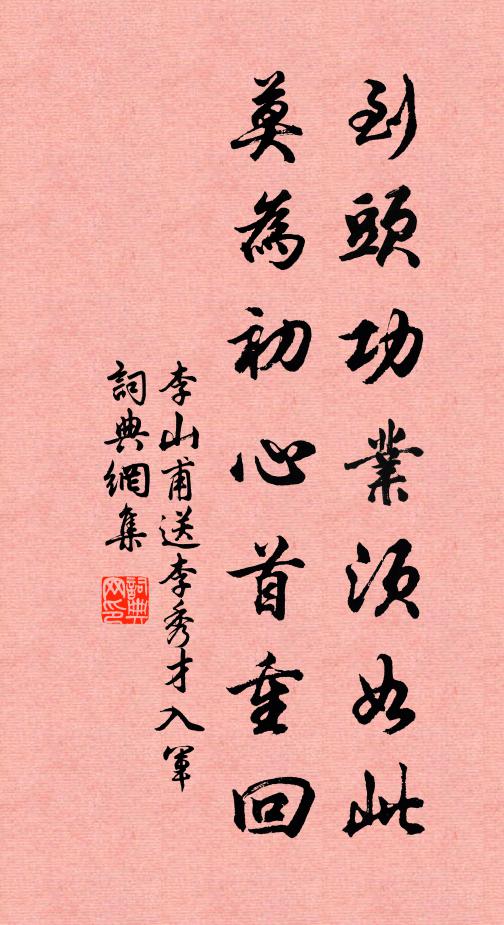 到頭功業須如此
莫為初心首重回
李山甫送李秀才入軍
詞典網集
詞典網印